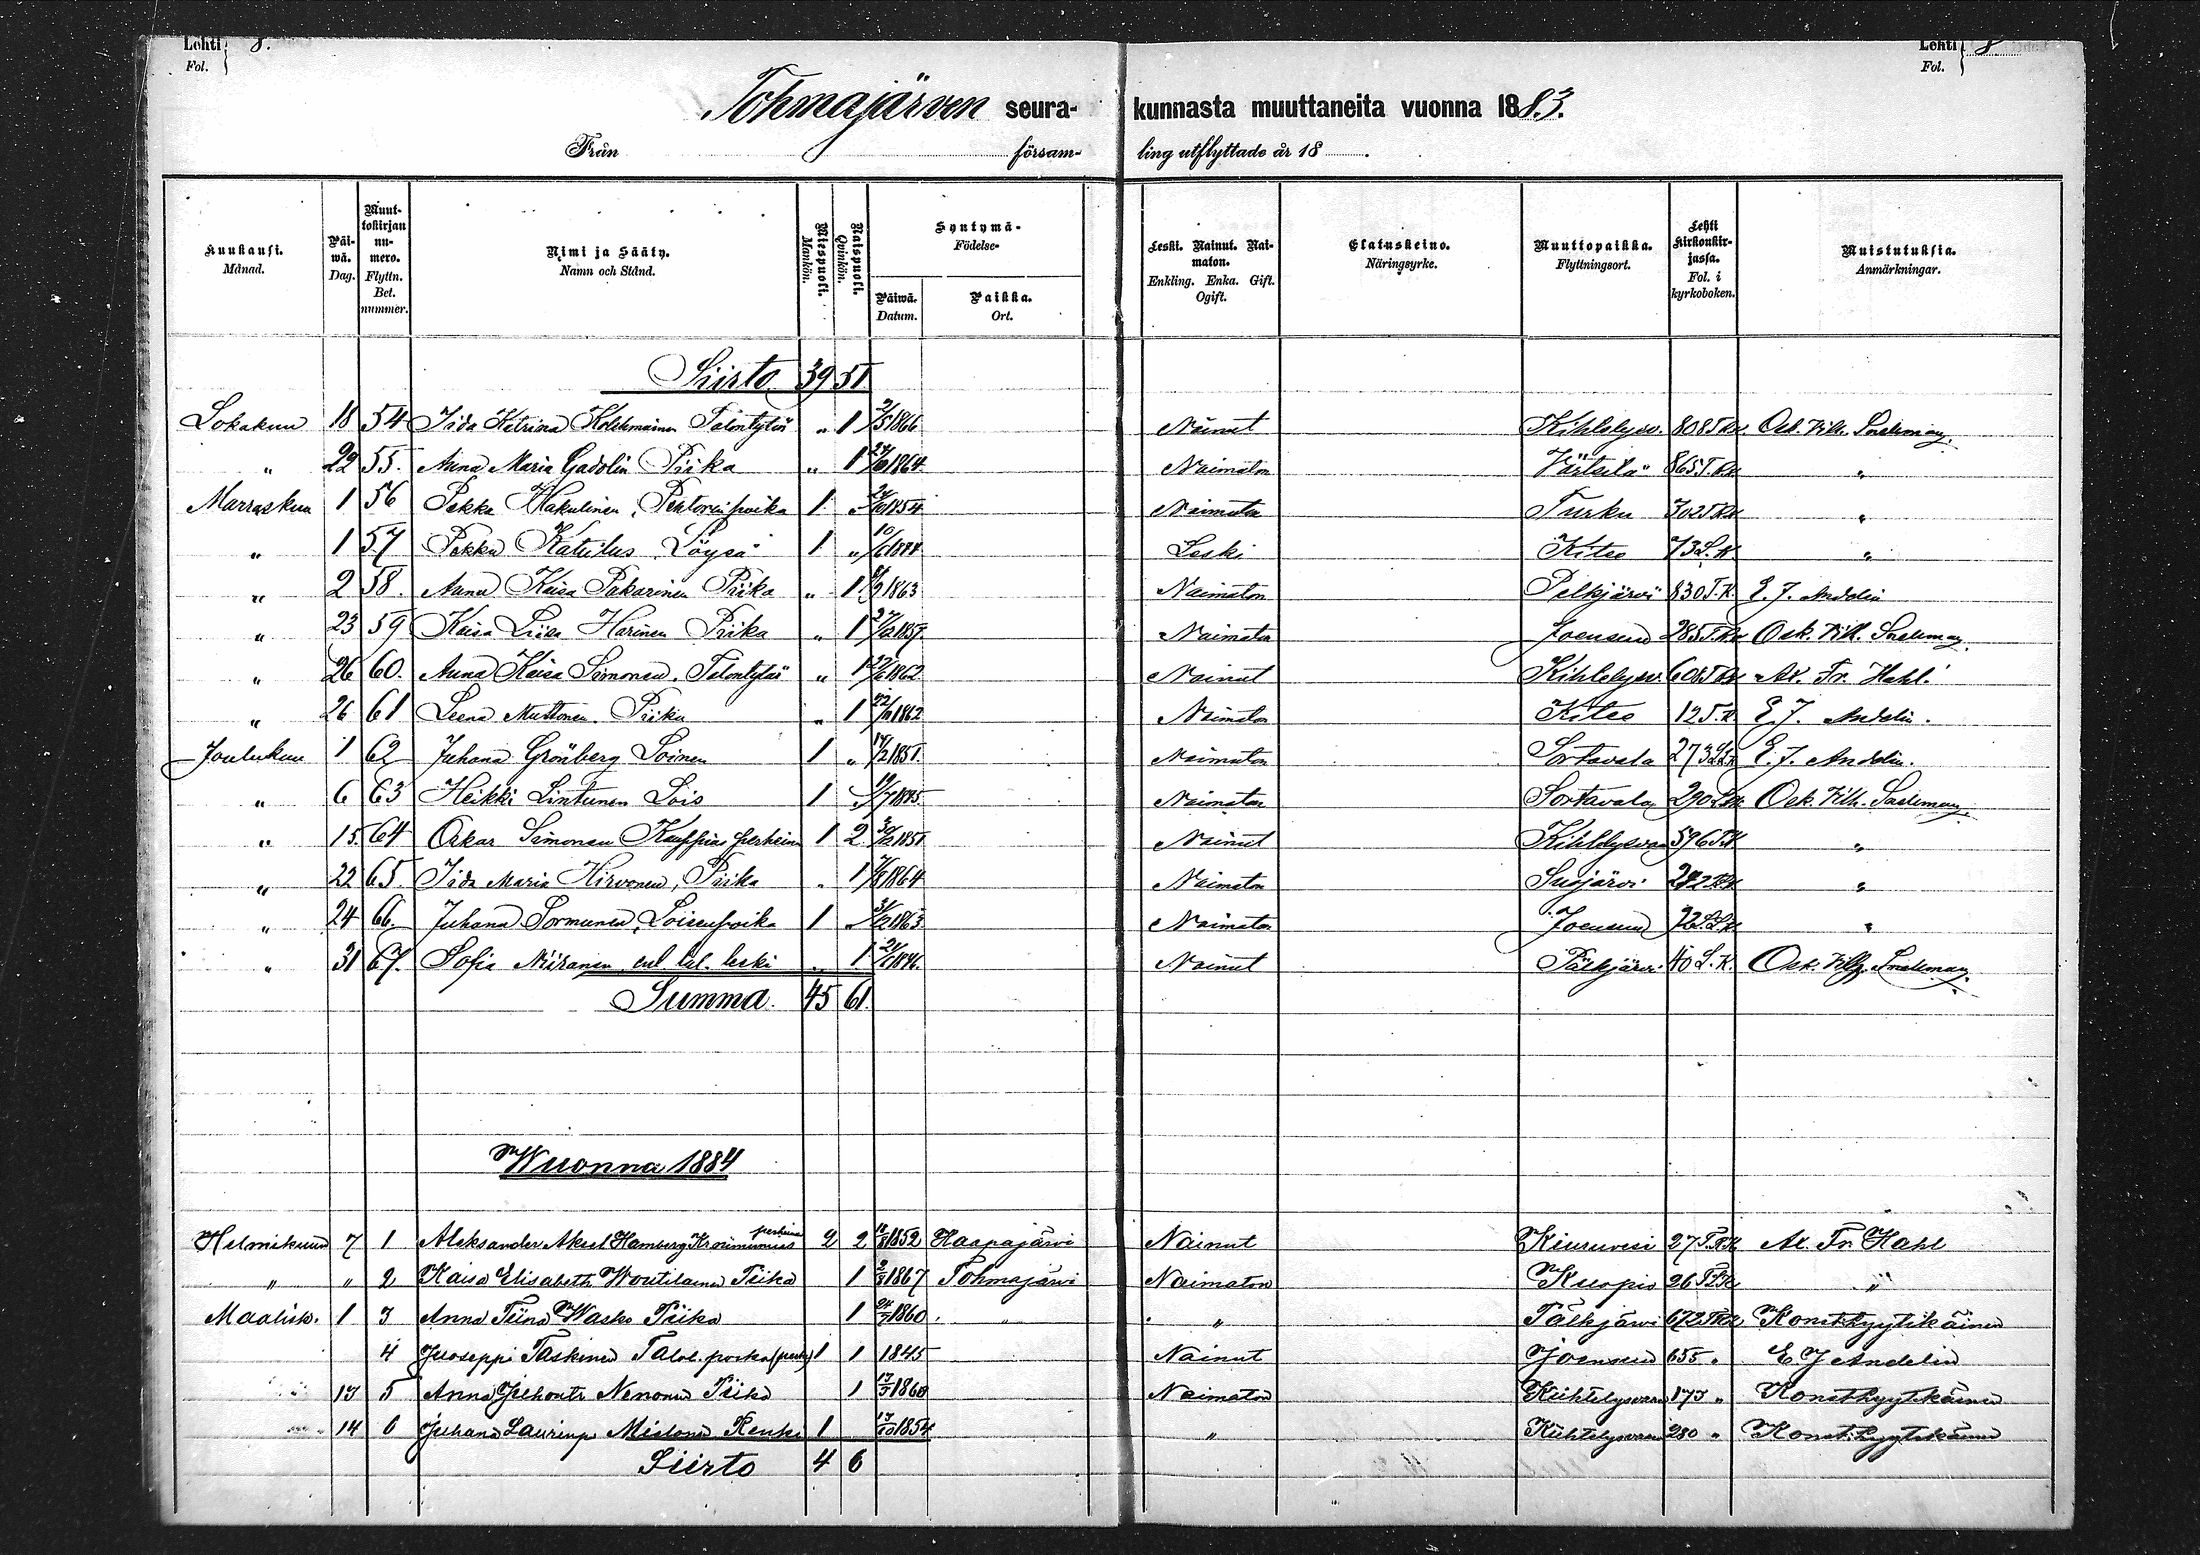 Lehti 8.
Fol.
Lehti 8
Fol.
Tohmajärven seura- kunnasta muuttaneita vuonna 1883.
Från försam- ling utflyttade år 18
Kuukausi. Månad. Päi-wä. Dag. Muut-tokirjan nu-mero. Flyttn. Bet. nummer. Nimi ja Sääty. Namn och Stånd. Miespuoli. Mankön. Naispuoli. Qvinkön. Syntymä- Födelse- Päiwä. Datum. Paikka. Ort. Leski. Nainut. Nai-maton. Enkling. Enka. Gift. Ogift. Elatuskeino. Näringsyrke. Muuttopaikka. Flyttningsort. Lehti Kirkonkir-jassa. Fol. i kyrkoboken. Muistutuksia. Anmärkningar.
Siirto 39 51
Lokakuu 18 54 Iida Katrina Holehmainen Talontytär " 1 1866 Nainut Kihtelysv. 808 T.K. Osk. Vilh. Snellman.
" 22 55. Anna Maria Gadolin Piika " 1 1864 Naimaton Värtsilä 865 T.K. "
Marraskuu 1 56 Pekka Hakulinen, 1 " 1854 Naimaton Turku 702 T.K. "
" 1 57 Pekka Katilus Löysä 1 " Leski Kitee 73 L.K. "
" 2 58. Anna Kaisa Pakarinen Piika " 1 1863 Naimaton Pelkjärvi 830 T.K. E. J. Andelin
" 23 59 Kaisa Liisa Harinen Piika " 1 1857 Naimaton Joensuu 285 T.K. Osk. Vilh. Snellman.
" 26 60. Anna Kaisa Simonen. Talontytär " 1 1862 Nainut Kihtelysv. 608 T.K. Ax. Fr. Hahl.
" 26 61 Leena Muttonen. Piika " 1 1862 Naimaton Kitee 12 T.K. E. J. Andelin.
Joulukuu 1 62 Juhana Grönberg Loinen 1 " 1851 Naimaton Sortavala 273 L.K. E. J. Andelin.
" 6 63 Heikki Lintunen Lois 1 " Naimaton Sortavala 290 L.K. Osk. Vilh. Snellman.
" 15. 64 Oskar Simonen Kauppias perheineen 1 2 1851 Nainut Kihtelysvaara 596 T.K. "
" 22 65. Iida Maria Hirvonen, Piika " 1 1864 Naimaton Suojärvi 242 T.K. "
" 24 66. Juhana Sormunen, Loisenpoika 1 " 1863 Naimaton Joensuu 72 L.K. "
" 31 67. Sofia Niiranen ent. tal. leski " 1 Nainut Pälkjärvi 40 L.K. Osk. Vilh. Snellman.
Summa. 45 61.
Wuonna 1884
Helmikuu 7 1 Aleksander Aksel Hamberg Kruununvouti perheineen 2 2 1852 Haapajärvi Nainut Kiuruvesi 27 T.K. Ax. Fr. Hahl
" " 2 Kaisa Elisabeth Woutilainen Piika 1 1867 Tohmajärvi Naimaton Kuopio 26 T.K. "
Maalisk. 1 3 Anna Tiina Wasko Piika 1 24/7 1860 " " Pälkjärvi 672 T.K. Konst. Lyytikäinen
4 Jooseppi Taskinen Talol. poika (perh.) 1 1 1845 Nainut Joensuu 655 " E J Andelin
13 5 Anna Juhontr Nenonen Piika 1 1860 Naimaton Kiihtelysvaara 173 " Konst. Lyytikäinen
14 6 Juhana Laurinp Mielonen Renki 1 13/10 1854 " Kiihtelysvaara 280 " Konst. Lyytikäinen
Siirto 4 6